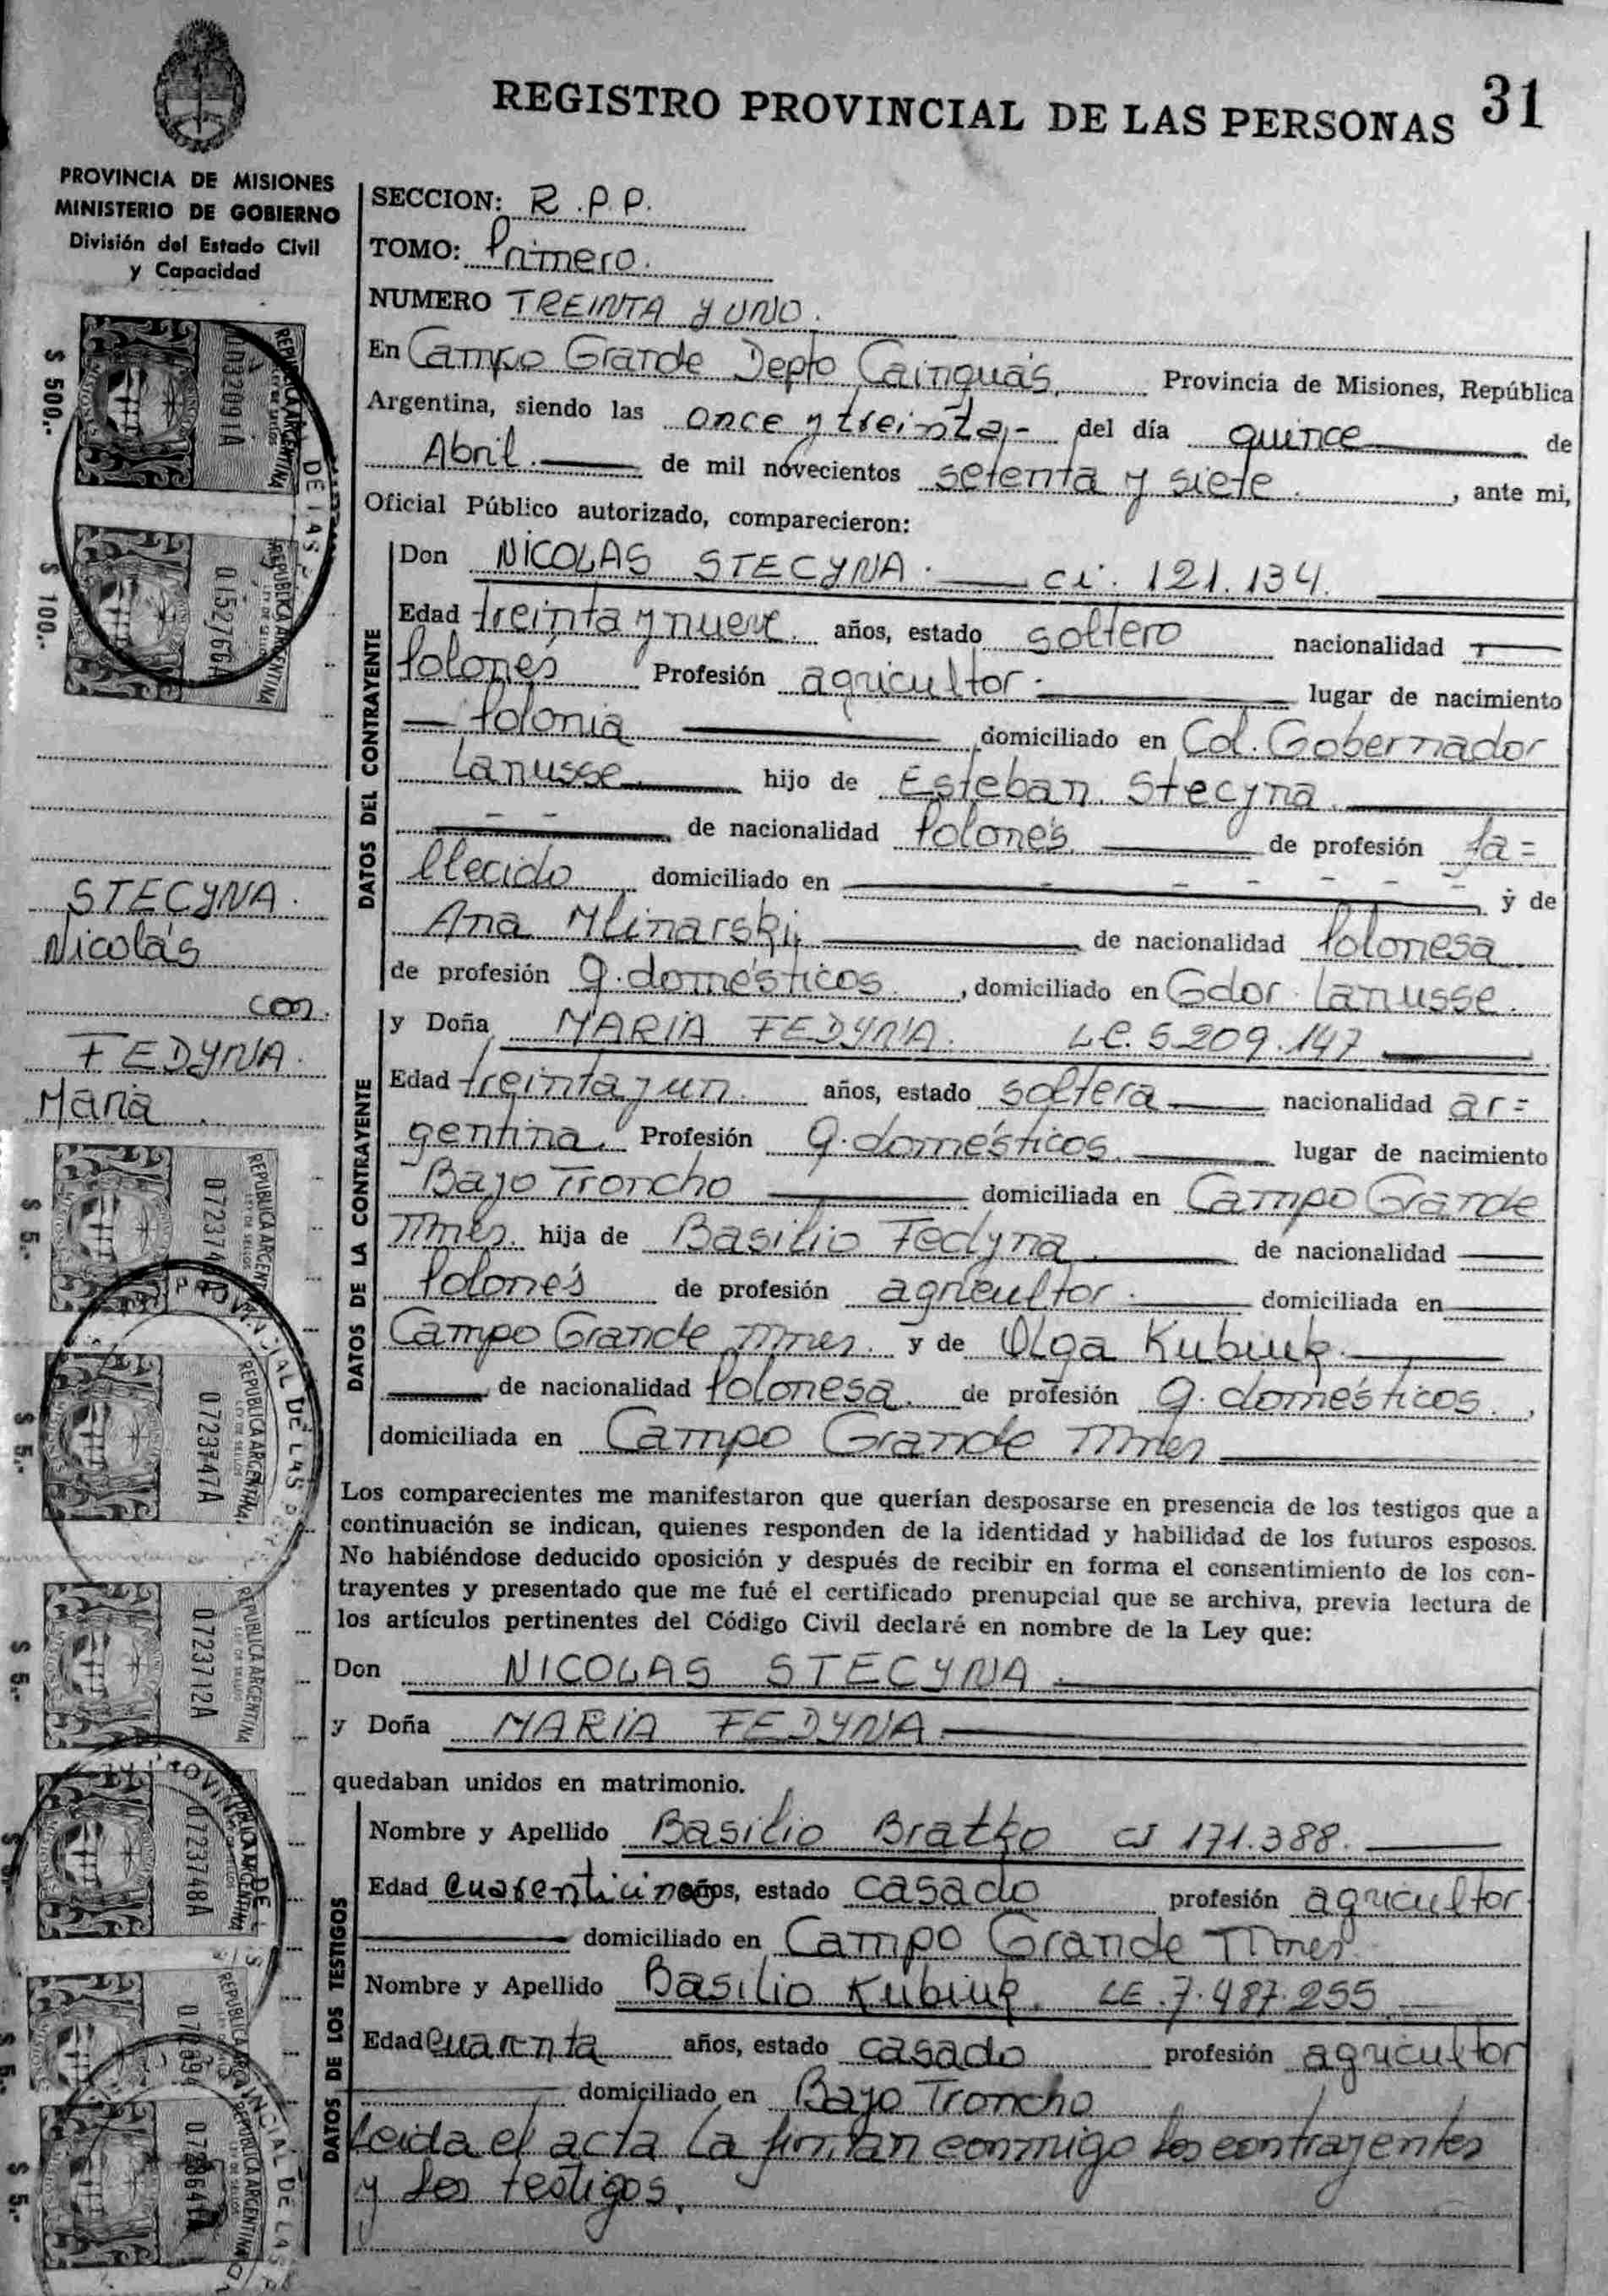 REGISTRO PROVINCIAL DE LAS PERSONAS 31
PROVINCIA DE MISIONES
MINISTERIO DE GOBIERNO
División del Estado Civil
y Capacidad
SECCION: R.P.P.
TOMO: Primero.
NUMERO TREINTA y UNO.
En Campo Grande Depto Cainguás, Provincia de Misiones, República
Argentina, siendo las once y treinta,- del día quince de
Abril.- de mil novecientos setenta y siete. , ante mi,
Oficial Público autorizado, comparecieron:
DATOS DEL CONTRAYENTE
Don NICOLAS STECYNA. ci. 121.134.
Edad treinta y nueve. años, estado soltero nacionalidad
Polonés Profesión agricultor. lugar de nacimiento
Polonia domiciliado en Col. Gobernador
Lanusse hijo de Esteban Stecyna
de nacionalidad Polonés de profesión fa=
llecido domiciliado en y de
Ana Mlinarski, de nacionalidad Polonesa
de profesión q. domésticos. , domiciliado en Gdor. Lanusse.
DATOS DE LA CONTRAYENTE
y Doña MARIA FEDYNA. LC. 5.209.147
Edad treinta y un años, estado soltera nacionalidad ar=
gentina. Profesión q. domésticos. lugar de nacimiento
Bajo Troncho domiciliada en Campo Grande
Mnes. hija de Basilio Fedyna de nacionalidad
Polonés de profesión agricultor. domiciliada en
Campo Grande Mnes. y de Olga Kubiuk.
de nacionalidad Polonesa. de profesión q. domésticos. ,
domiciliada en Campo Grande Mnes
Los comparecientes me manifestaron que querían desposarse en presencia de los testigos que a
continuación se indican, quienes responden de la identidad y habilidad de los futuros esposos.
No habiéndose deducido oposición y después de recibir en forma el consentimiento de los con-
trayentes y presentado que me fué el certificado prenupcial que se archiva, previa lectura de
los artículos pertinentes del Código Civil declaré en nombre de la Ley que:
Don NICOLAS STECYNA.
y Doña MARIA FEDYNA.
quedaban unidos en matrimonio.
DATOS DE LOS TESTIGOS
Nombre y Apellido Basilio Bratko CI 171.388.
Edad Cuarenticinco años, estado casado profesión agricultor
domiciliado en Campo Grande Mnes
Nombre y Apellido Basilio Kubiuk. LE. 7.487.255
Edad Cuarenta años, estado casado profesión agricultor
domiciliado en Bajo Troncho
Leida el acta la firman conmigo los contrayentes
y los testigos.
STECYNA.
Nicolás
con.
FEDYNA.
Maria.
$ 500.-
REPUBLICA ARGENTINA
$ 100.-
0152766A
REPUBLICA ARGENTINA
$ 5.-
REPUBLICA ARGENTINA
$ 5.-
0723747A
REPUBLICA ARGENTINA
$ 5.-
0723712A
REPUBLICA ARGENTINA
0723748A
REPUBLICA ARGENTINA
$ 5.-
REPUBLICA ARGENTINA